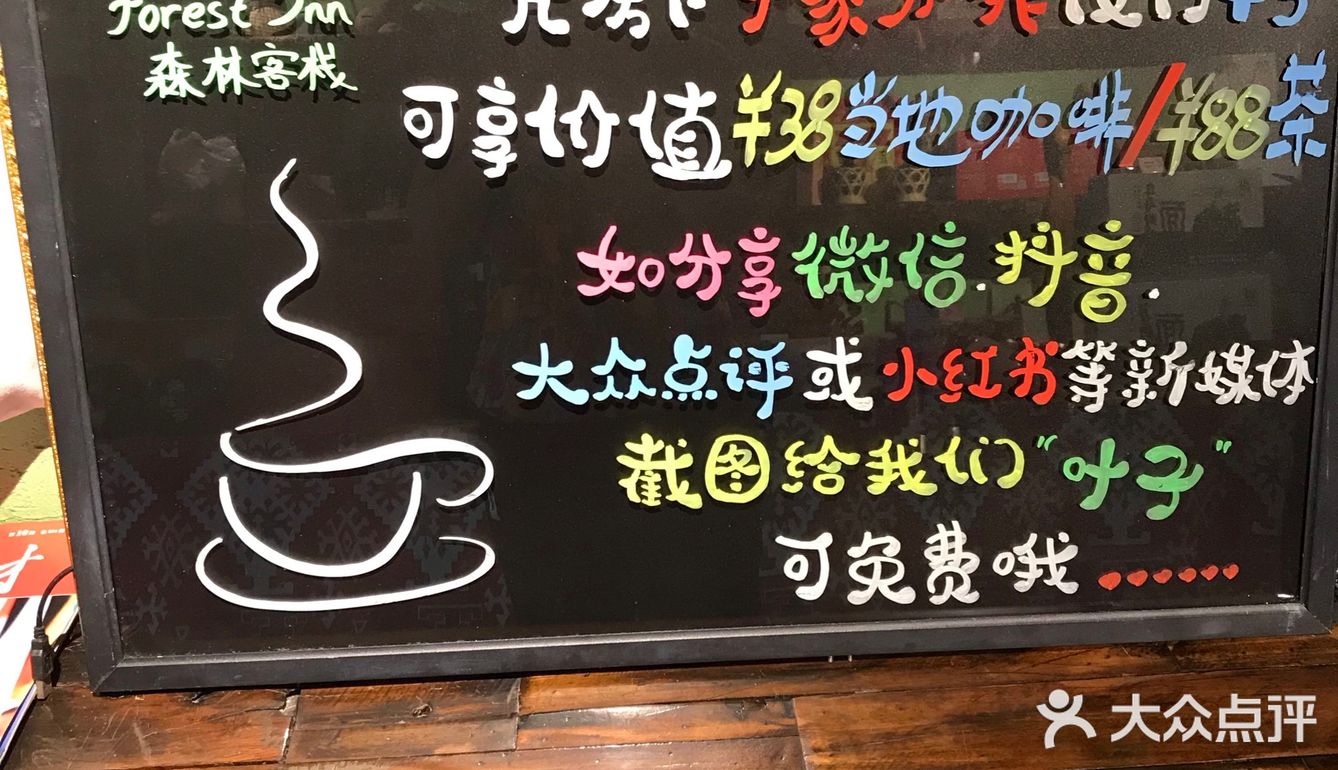 Forest Inn
森林客栈
可享价值¥38当地咖啡/¥88茶
如分享微信.抖音.
大众点评或小红书等新媒体
截图给我们"叶子"
可免费哦......
大众点评